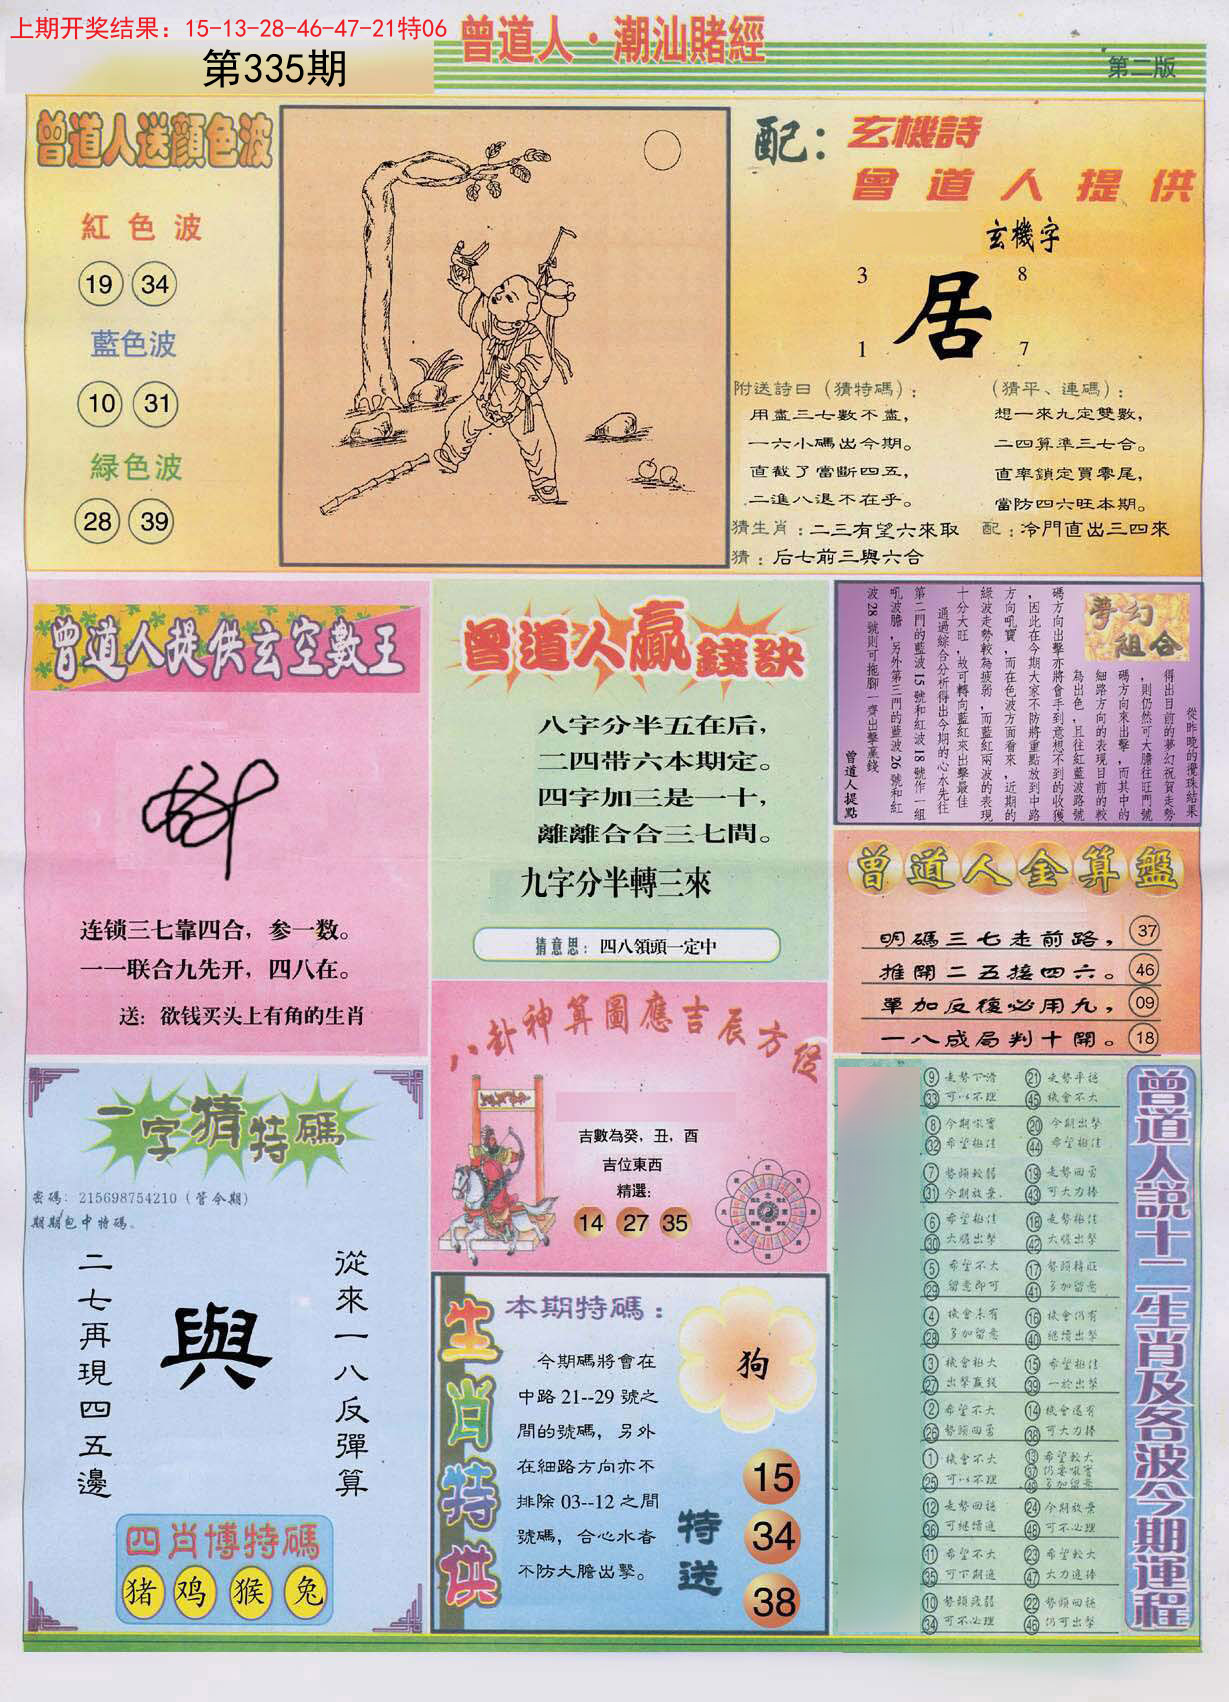 上期开奖结果：15-13-28-46-47-21特06
第335期
曾道人·潮汕賭經
第二版
曾道人送顏色波
紅色波
19 34
藍色波
10 31
緑色波
28 39
配：玄機詩
曾道人提供
玄機字
3 8
居
1 7
附送詩曰（猜特碼）：
用盡三七數不盡，
一六小碼出今期。
直截了當斷四五，
二進八退不在乎。
（猜平、連碼）：
想一來九定雙數，
二四算準三七合。
直率鎖定買零尾，
當防四六旺本期。
猜生肖：二三有望六來取
配：冷門直出三四來
猜：后七前三與六合
曾道人提供玄空數王
连锁三七靠四合，参一数。
一一联合九先开，四八在。
送：欲钱买头上有角的生肖
曾道人贏錢訣
八字分半五在后，
二四带六本期定。
四字加三是一十，
離離合合三七間。
九字分半轉三來
猜意思：四八領頭一定中
夢幻組合
從昨晚的攪珠結果
得出目前的夢幻祝賀走勢
，則仍然可大膽往旺門號
碼方向來出擊，而其中的
細路方向的表現目前的較
為出色，且往紅藍波路號
碼方向出擊亦將會手到意想不到的收獲
，因此在今期大家不防將重點放到中路
方向吼寶，而在色波方面看來，近期的
綠波走勢較為疲弱，而藍紅兩波的表現
十分大旺，故可轉向藍紅來出擊最佳
通過綜合分析得出今期的心水先往
第二門的藍波15號和紅波18號作一組
吼波膽，另外第三門的藍波26號和紅
波28號則可拖腳一齊出擊贏錢
曾道人提點
曾道人金算盤
明碼三七走前路， 37
推開二五接四六。 46
單加反復必用九， 09
一八成局判十開。 18
八卦神算圖應吉辰方位
吉數為癸，丑，酉
吉位東西
精選：
14 27 35
一字猜特碼
密碼：215698754210（管今期）
期期包中特碼。
從來一八反彈算
與
二七再現四五邊
四肖博特碼
猪 鸡 猴 兔
生肖特供
本期特碼：
今期碼將會在
中路21--29號之
間的號碼，另外
在細路方向亦不
排除03--12之間
號碼，合心水者
不防大膽出擊。
狗
特送
15
34
38
曾道人説十二生肖及各波今期運程
9 走勢下滑
33 可以不理
21 走勢平穩
45 機會不大
8 今期吼寶
32 希望極佳
20 今期出擊
44 希望極佳
7 勢頭較弱
31 今期放棄
19 走勢回勇
43 可大力捧
6 希望極佳
30 大膽出擊
18 走勢極佳
42 大膽出擊
5 希望不大
29 留意即可
17 勢頭轉旺
41 多加留意
4 機會未有
28 多加留意
16 機會仍有
40 繼續出擊
3 機會極大
27 出擊贏錢
15 希望極佳
39 一於出擊
2 希望不大
26 勢頭回勇
14 機會還有
38 可大力捧
1 機會不大
25 可以不理
13 希望較大
37 仍要吼寶
49 多加留意
12 走勢回穩
36 可繼續追
24 今期放棄
48 可不必理
11 希望不大
35 可下期追
23 希望較大
47 大力追捧
10 勢頭疲弱
34 可不必理
22 勢頭回穩
46 仍可出擊